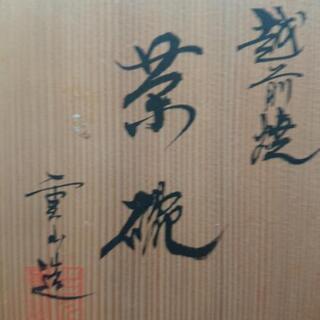 越前焼
茶碗
雲山造